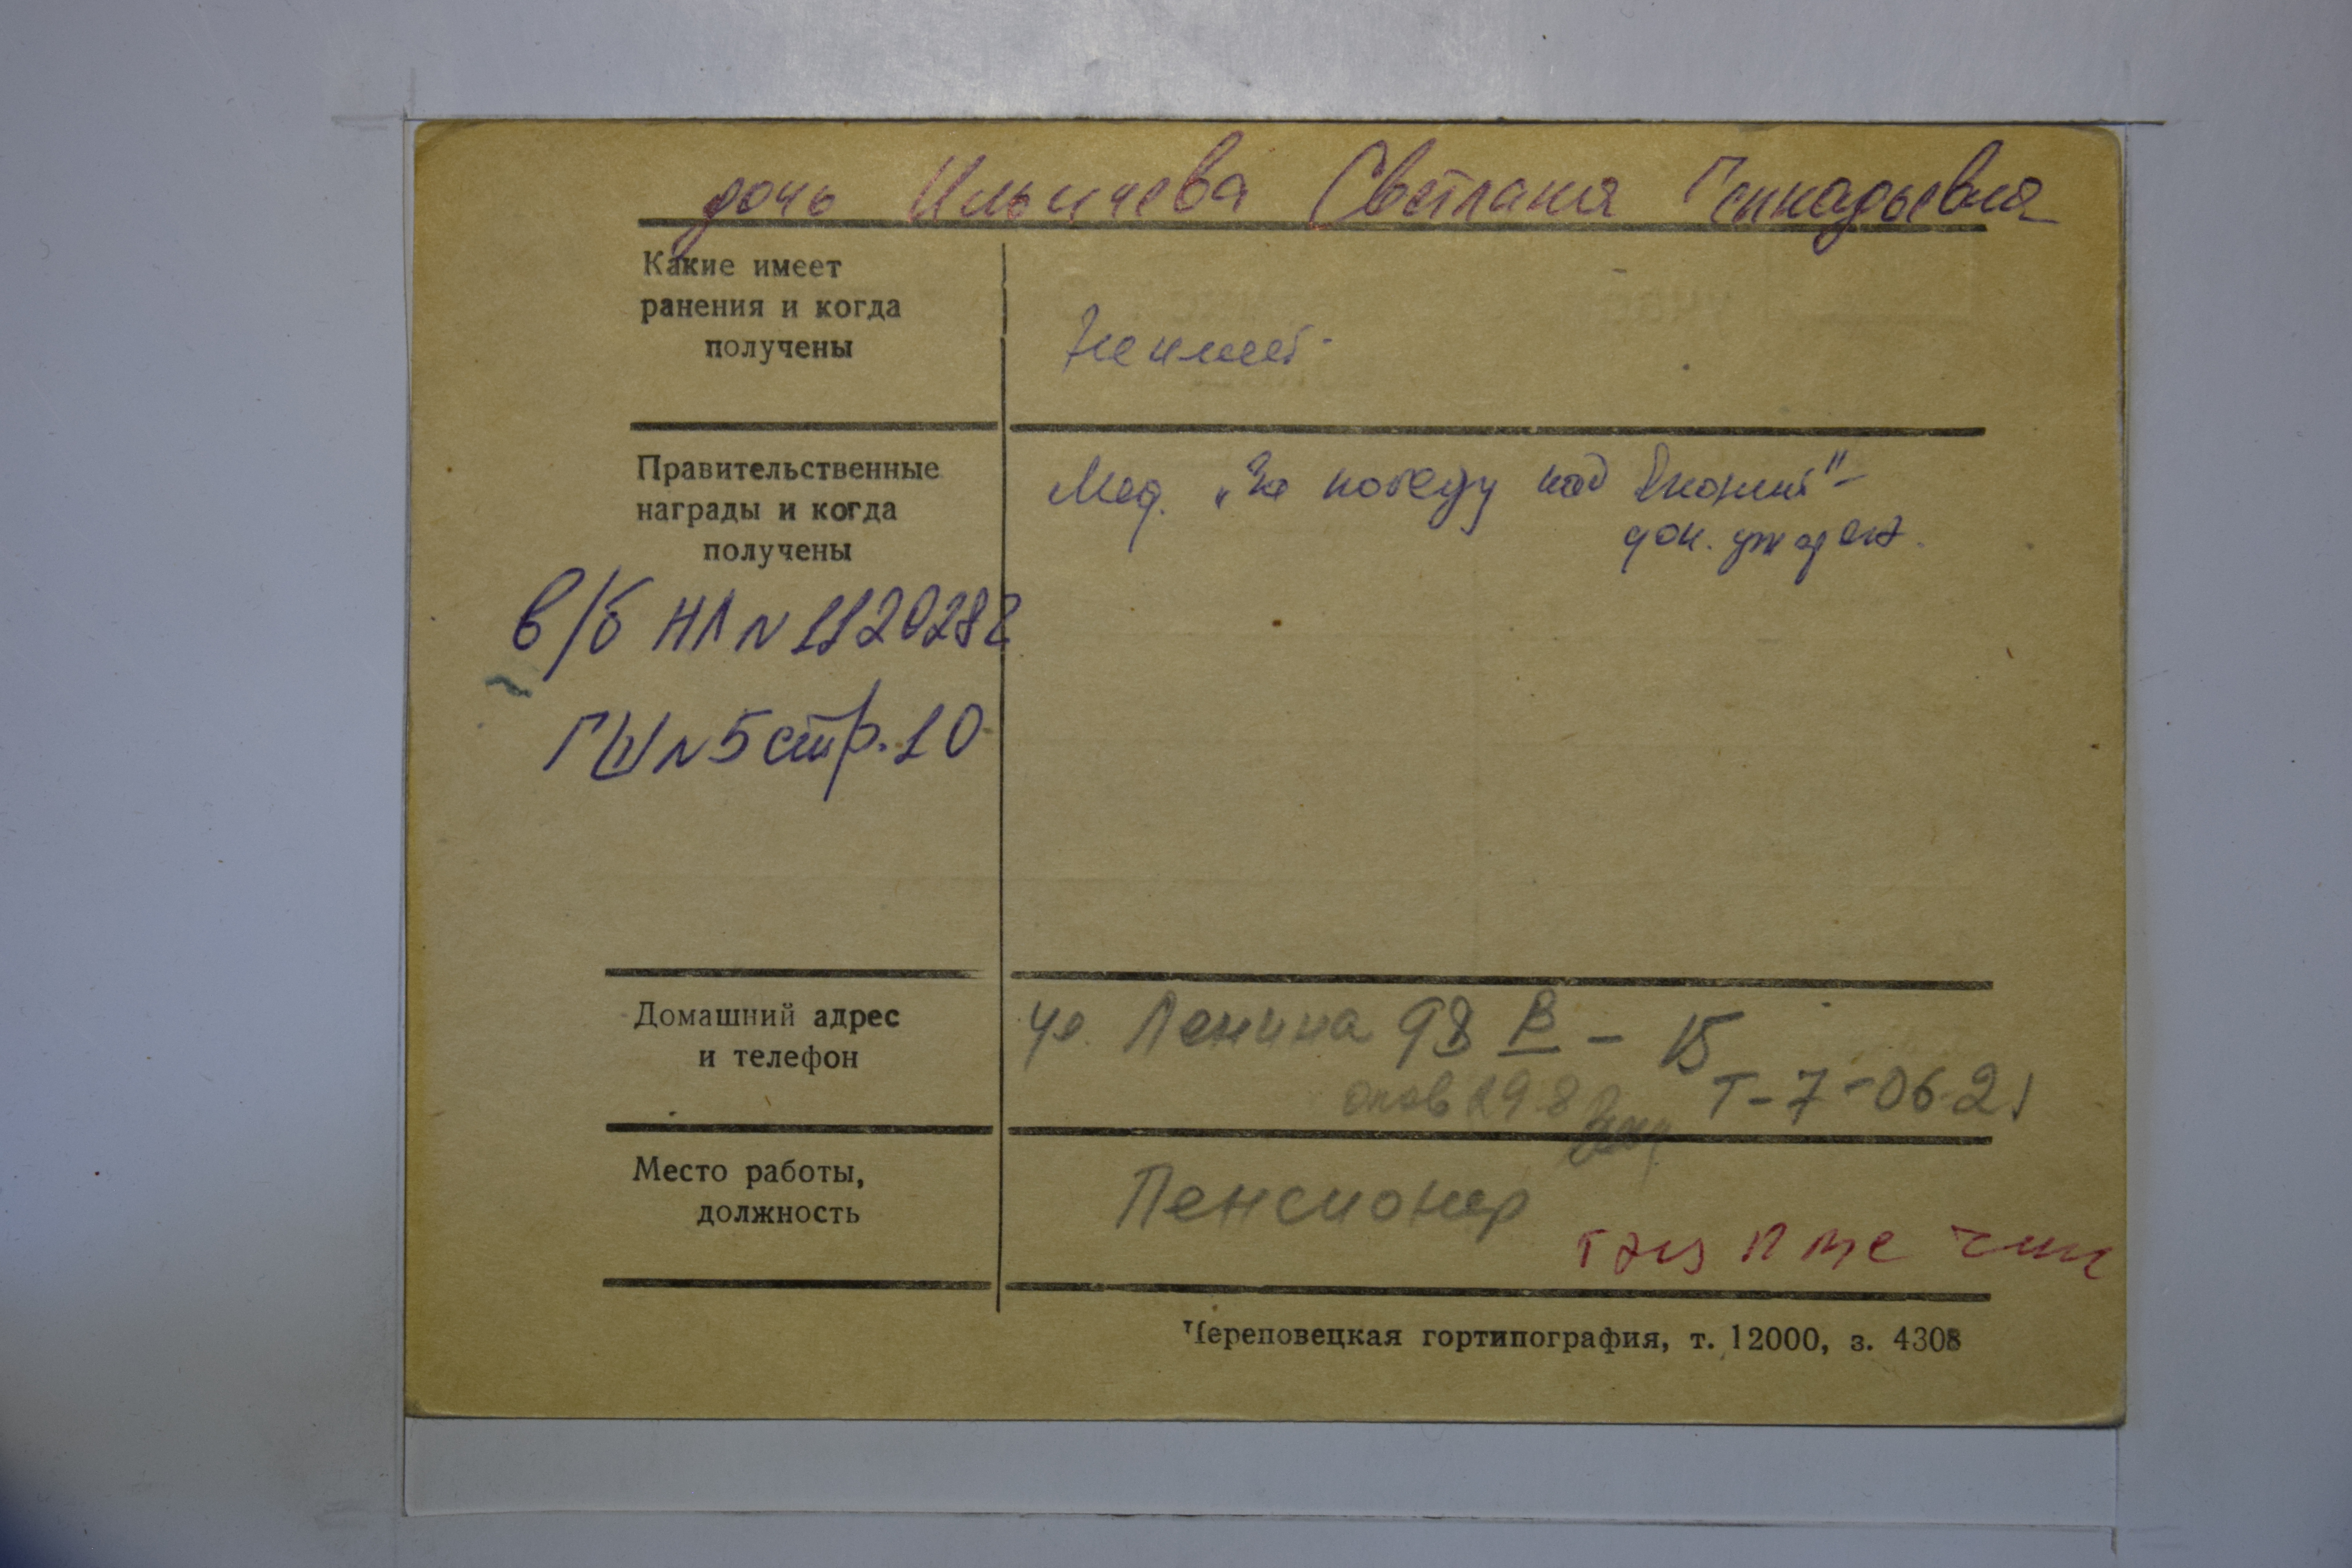 дочь Ильичева Светлана Геннадьевна
Какие имеет
ранения и когда
получены
Не имеет.
Правительственные
награды и когда
получены
Мед. "За победу над Японией" -
док. утерян.
в/б НЛ N 1120282
ГШ N 5 стр. 10
Домашний адрес
и телефон
ул. Ленина 98 В - 15
Т-7-06-21
Место работы,
должность
Пенсионер
Череповецкая гортипография, т. 12000, з. 4308